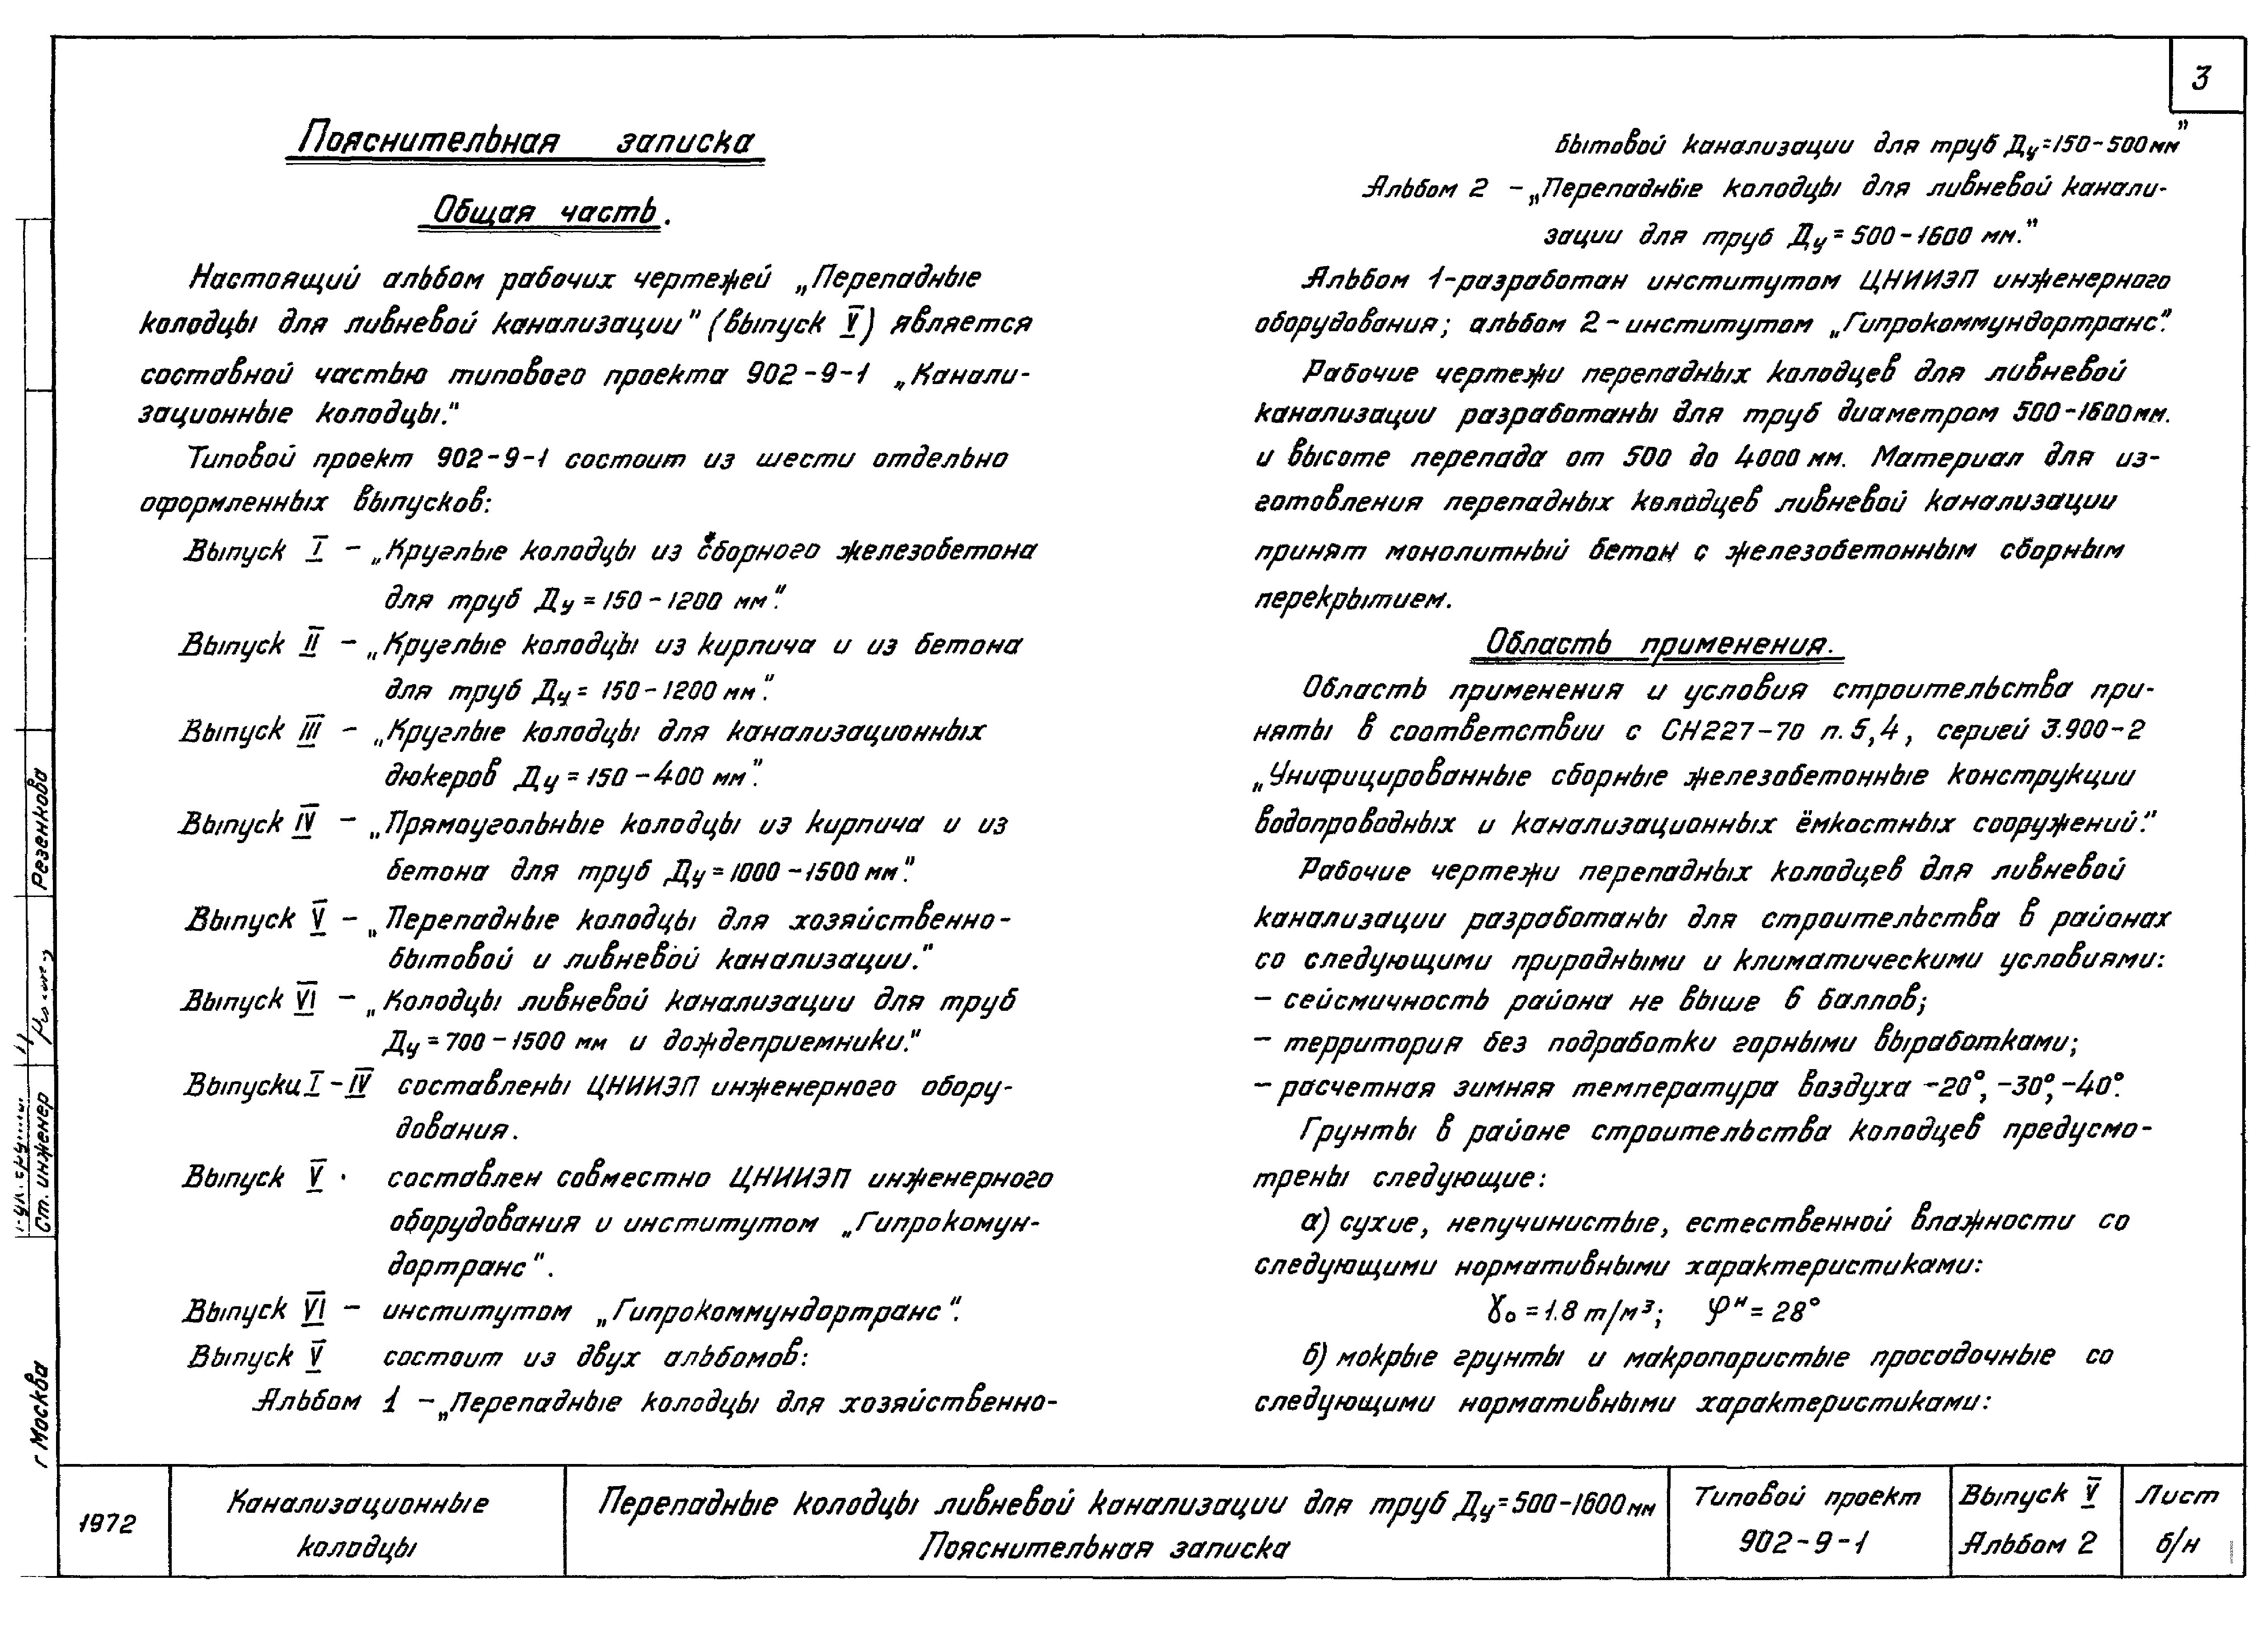 3
Пояснительная записка
Общая часть.
Настоящий альбом рабочих чертежей „Перепадные
колодцы для ливневой канализации" (выпуск V) является
составной частью типового проекта 902-9-1 „Канали-
зационные колодцы."
Типовой проект 902-9-1 состоит из шести отдельно
оформленных выпусков:
Выпуск I – „Круглые колодцы из сборного железобетона
для труб Ду = 150-1200 мм".
Выпуск II – „Круглые колодцы из кирпича и из бетона
для труб Ду = 150-1200 мм".
Выпуск III – „Круглые колодцы для канализационных
дюкеров Ду = 150-400 мм".
Выпуск IV – „Прямоугольные колодцы из кирпича и из
бетона для труб Ду = 1000-1500 мм".
Выпуск V – „Перепадные колодцы для хозяйственно-
бытовой и ливневой канализации."
Выпуск VI – „Колодцы ливневой канализации для труб
Ду = 700-1500 мм и дождеприемники."
Выпуски I-IV составлены ЦНИИЭП инженерного обору-
дования.
Выпуск V · составлен совместно ЦНИИЭП инженерного
оборудования и институтом „Гипрокомун-
дортранс".
Выпуск VI – институтом „Гипрокоммундортранс".
Выпуск V состоит из двух альбомов:
Альбом 1 – „Перепадные колодцы для хозяйственно-
бытовой канализации для труб Ду=150-500мм"
Альбом 2 – „Перепадные колодцы для ливневой канали-
зации для труб Ду = 500-1600 мм."
Альбом 1-разработан институтом ЦНИИЭП инженерного
оборудования; альбом 2-институтом „Гипрокоммундортранс".
Рабочие чертежи перепадных колодцев для ливневой
канализации разработаны для труб диаметром 500-1600мм.
и высоте перепада от 500 до 4000 мм. Материал для из-
готовления перепадных колодцев ливневой канализации
принят монолитный бетон с железобетонным сборным
перекрытием.
Область применения.
Область применения и условия строительства при-
няты в соответствии с СН227-70 п.5,4, серией 3.900-2
„Унифицированные сборные железобетонные конструкции
водопроводных и канализационных ёмкостных сооружений."
Рабочие чертежи перепадных колодцев для ливневой
канализации разработаны для строительства в районах
со следующими природными и климатическими условиями:
– сейсмичность района не выше 6 баллов;
– территория без подработки горными выработками;
– расчетная зимняя температура воздуха -20°, -30°, -40°.
Грунты в районе строительства колодцев предусмо-
трены следующие:
а) сухие, непучинистые, естественной влажности со
следующими нормативными характеристиками:
γо = 1.8 т/м³; φᴴ = 28°
б) мокрые грунты и макропористые просадочные со
следующими нормативными характеристиками:
Резенкова
Ст. инженер
г Москва
1972
Канализационные
колодцы
Перепадные колодцы ливневой канализации для труб Ду=500-1600мм
Пояснительная записка
Типовой проект
902-9-1
Выпуск V
Альбом 2
Лист
б/н